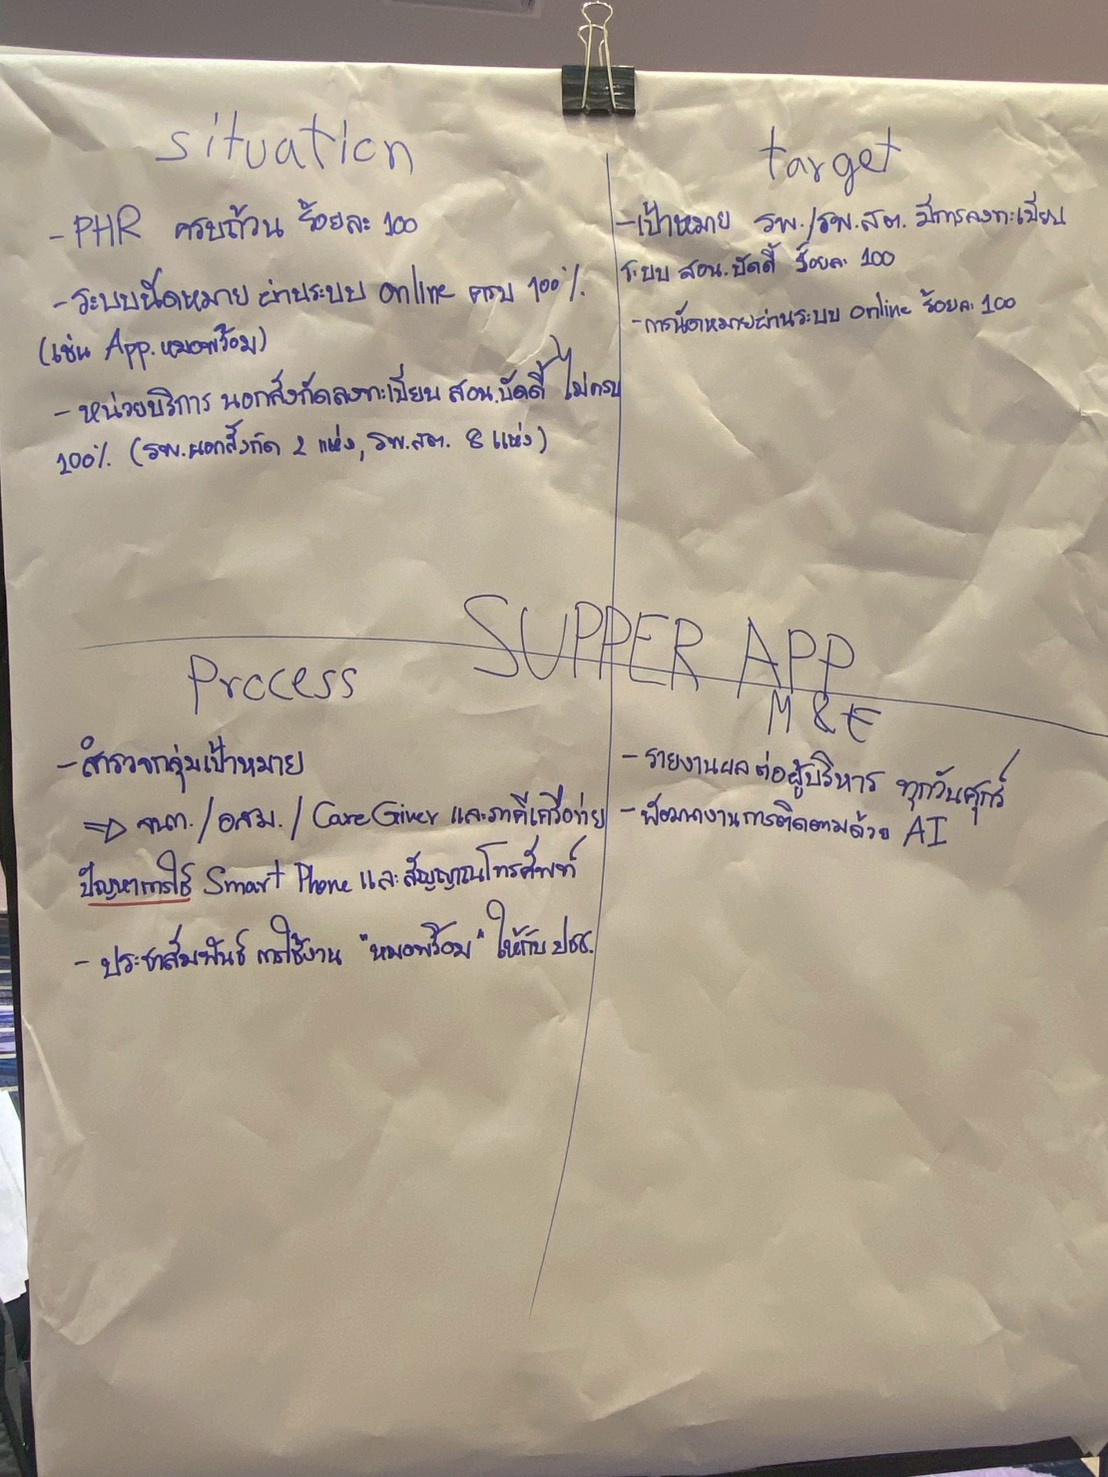 situation
- PHR ครบถ้วน ร้อยละ 100
- ระบบนัดหมาย ผ่านระบบ online ครบ 100%
(เช่น App.หมอพร้อม)
- หน่วยบริการ นอกสังกัดลงทะเบียน สอน.บัดดี้ ไม่ครบ
100% (รพ.นอกสังกัด 2 แห่ง, รพ.สต. 8 แห่ง)
target
- เป้าหมาย รพ./รพ.สต. มีการลงทะเบียน
ระบบ สอน.บัดดี้ ร้อยละ 100
- การนัดหมายผ่านระบบ online ร้อยละ 100
SUPPER APP
Process
- สำรวจกลุ่มเป้าหมาย
⇒ จนท./อสม./Care Giver และภาคีเครือข่าย
ปัญหาการใช้ Smart Phone และสัญญาณโทรศัพท์
- ประชาสัมพันธ์ การใช้งาน "หมอพร้อม" ให้กับ ปชช.
M & E
- รายงานผลต่อผู้บริหาร ทุกวันศุกร์
- พัฒนางานการติดตามด้วย AI